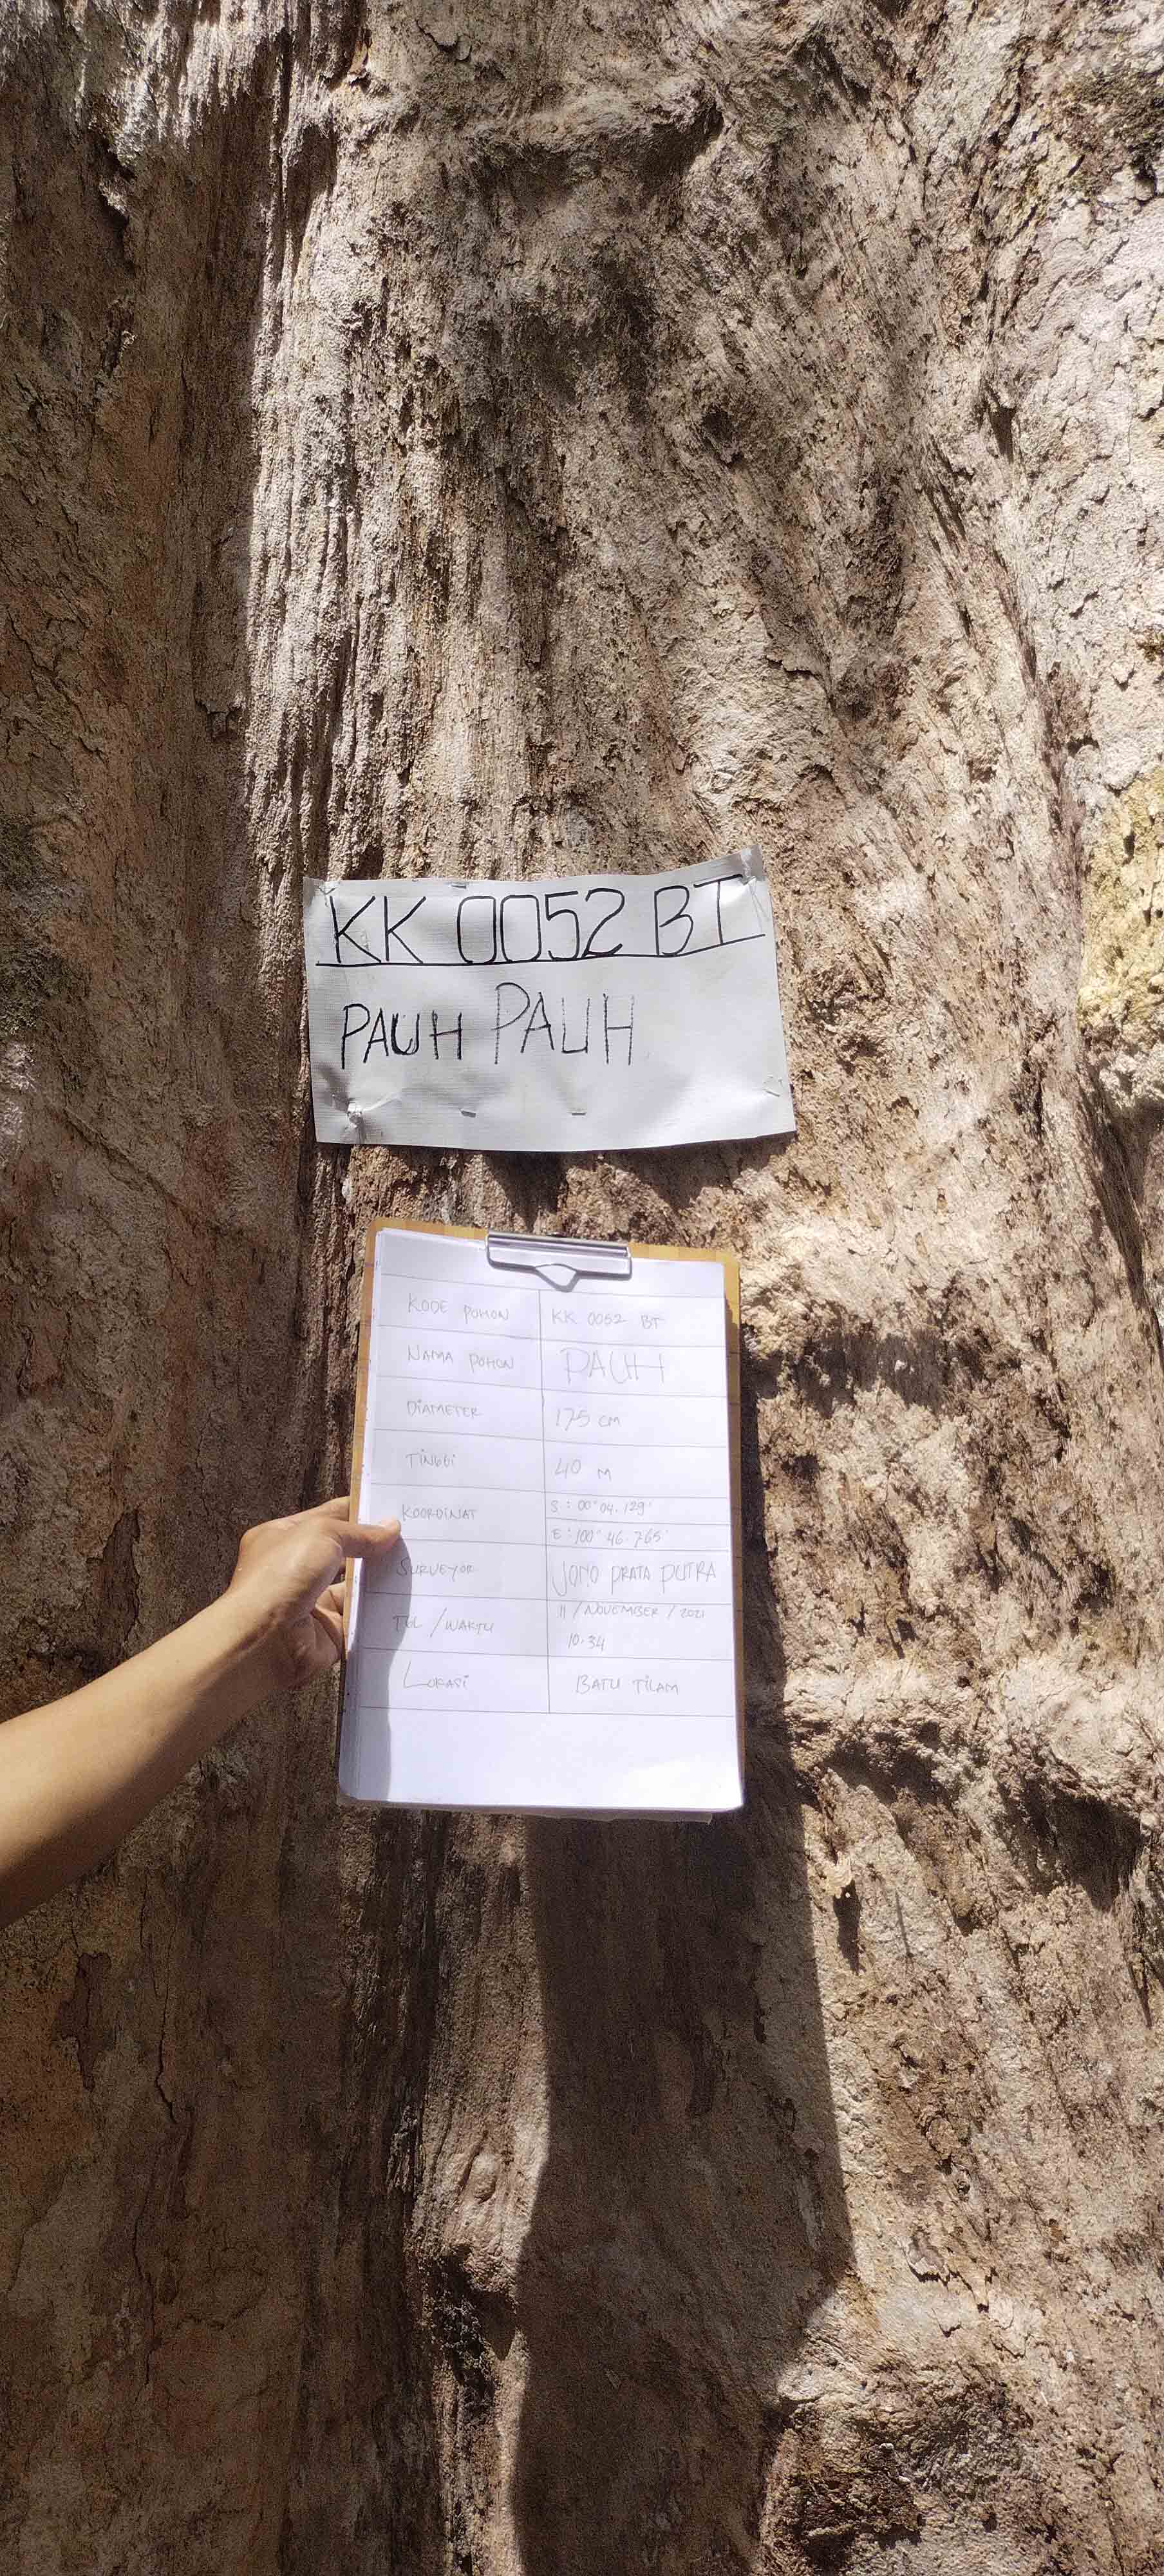 KK 0052 BT
PAUH PAUH
KODE POHON KK 0052 BT
NAMA POHON PAUH
DIAMETER 175 cm
TINGGI 40 M
KOORDINAT S : 00° 04. 129'
E : 100° 46. 765'
SURVEYOR JONO PRATA PUTRA
TGL / WAKTU 11 / NOVEMBER / 2021
10.34
LOKASI BATU TILAM